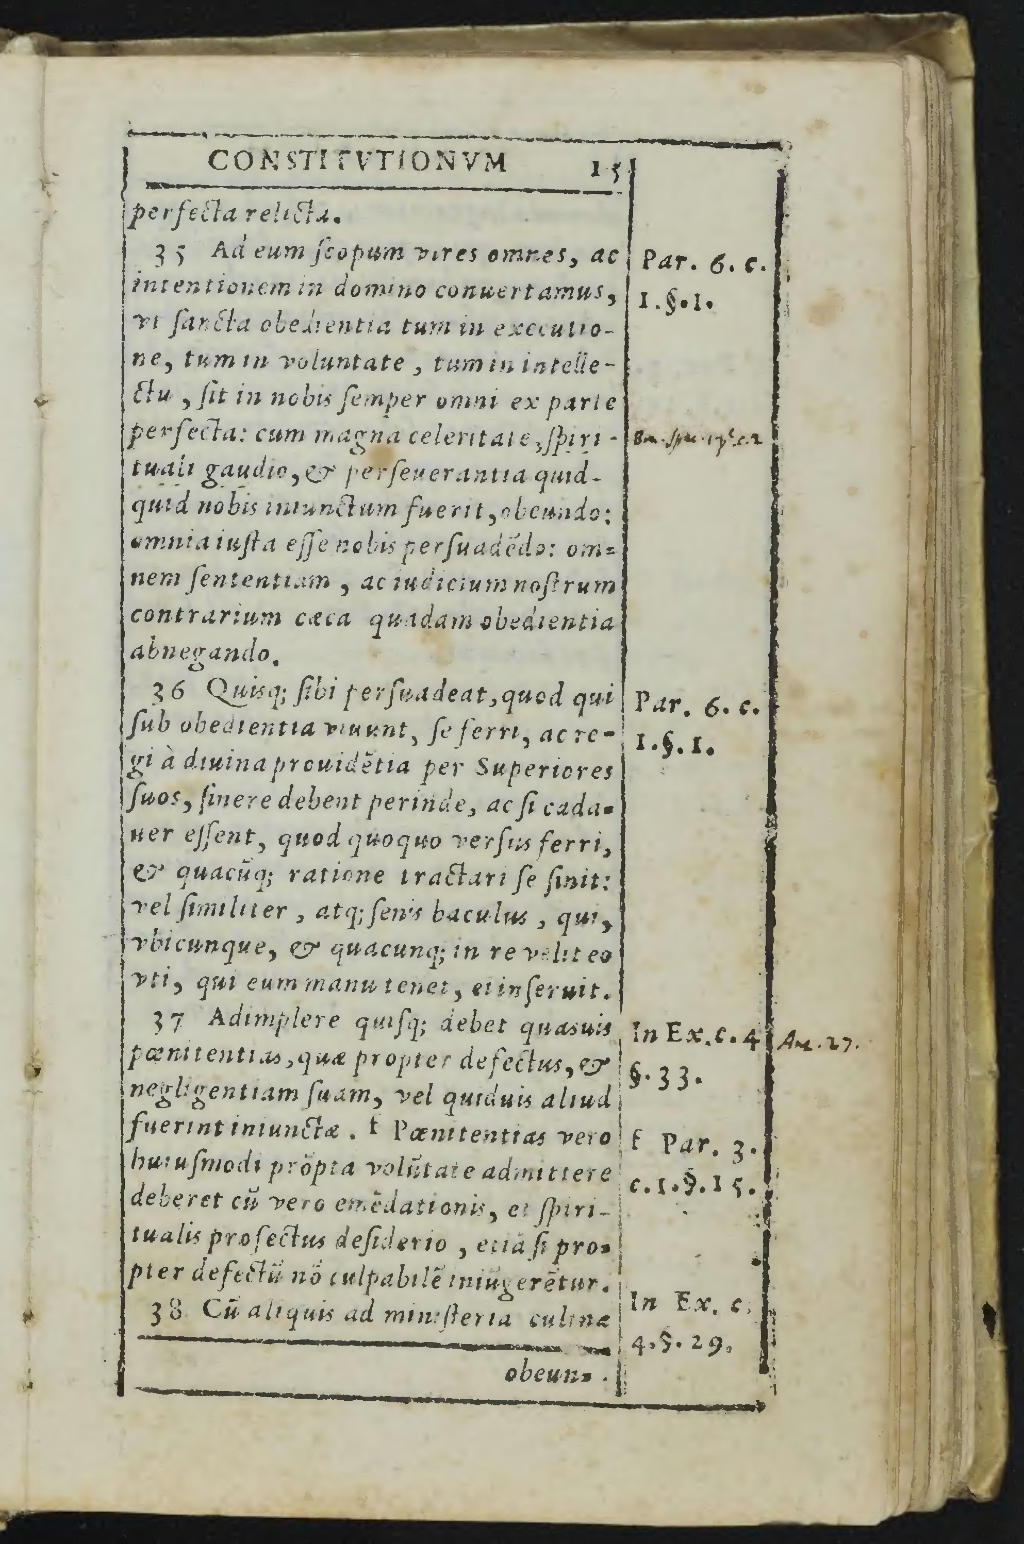 CONSTITVTIONVM 15
perfecta relicta.
35 Ad eum ſcopum vires omnes, ac
intentionem in domino conuertamus,
vt ſancta obedientia tum in executio-
ne, tum in voluntate, tum in intelle-
ctu, ſit in nobis ſemper omni ex parte
perfecta: cum magna celeritate, ſpiri-
tuali gaudio, & perſeuerantia quid-
quid nobis iniunctum fuerit, obeundo:
omnia iuſta eſſe nobis perſuadẽdo: om=
nem ſententiam, ac iudicium noſtrum
contrarium cæca quadam obedientia
abnegando.
36 Quiſq; ſibi perſuadeat, quod qui
ſub obedientia viuunt, ſe ferri, ac re-
gi à diuina prouidẽtia per Superiores
ſuos, ſinere debent perinde, ac ſi cada=
uer eſſent, quod quoquo verſus ferri,
& quacũq; ratione tractari ſe ſinit:
vel ſimiliter, atq; ſenis baculus, qui,
vbicunque, & quacunq; in re velit eo
vti, qui eum manu tenet, ei inſeruit.
37 Adimplere quiſq; debet quasuis
pœnitentias, quæ propter defectus, &
negligentiam ſuam, vel quiduis aliud
fuerint iniunctæ. f Pœnitentias vero
huiuſmodi prõpta volũtate admittere
deberet cũ vero emẽdationis, et ſpiri-
tualis profectus deſiderio, etiã ſi pro=
pter defectũ nõ culpabilẽ iniũgerẽtur.
38 Cũ aliquis ad miniſteria culinæ
obeun=
Par. 6. c.
1. §. 1.
Par. 6. c.
1. §. 1.
In Ex. c. 4
§. 33.
f Par. 3.
c. 1. §. 15.
In Ex. c.
4. §. 29.